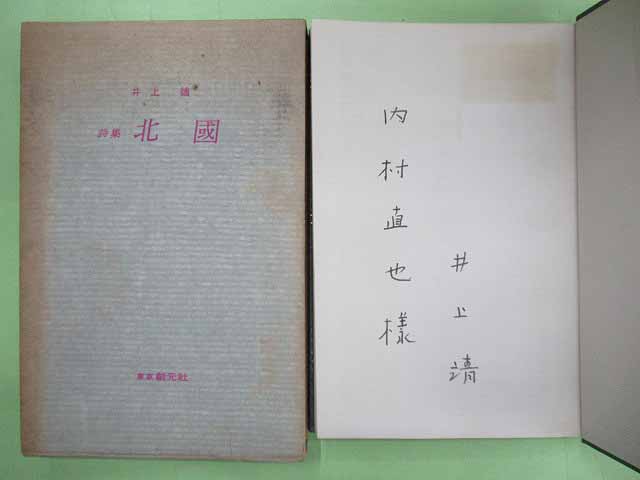 井上靖
詩集 北國
東京創元社
内村直也様
井上靖